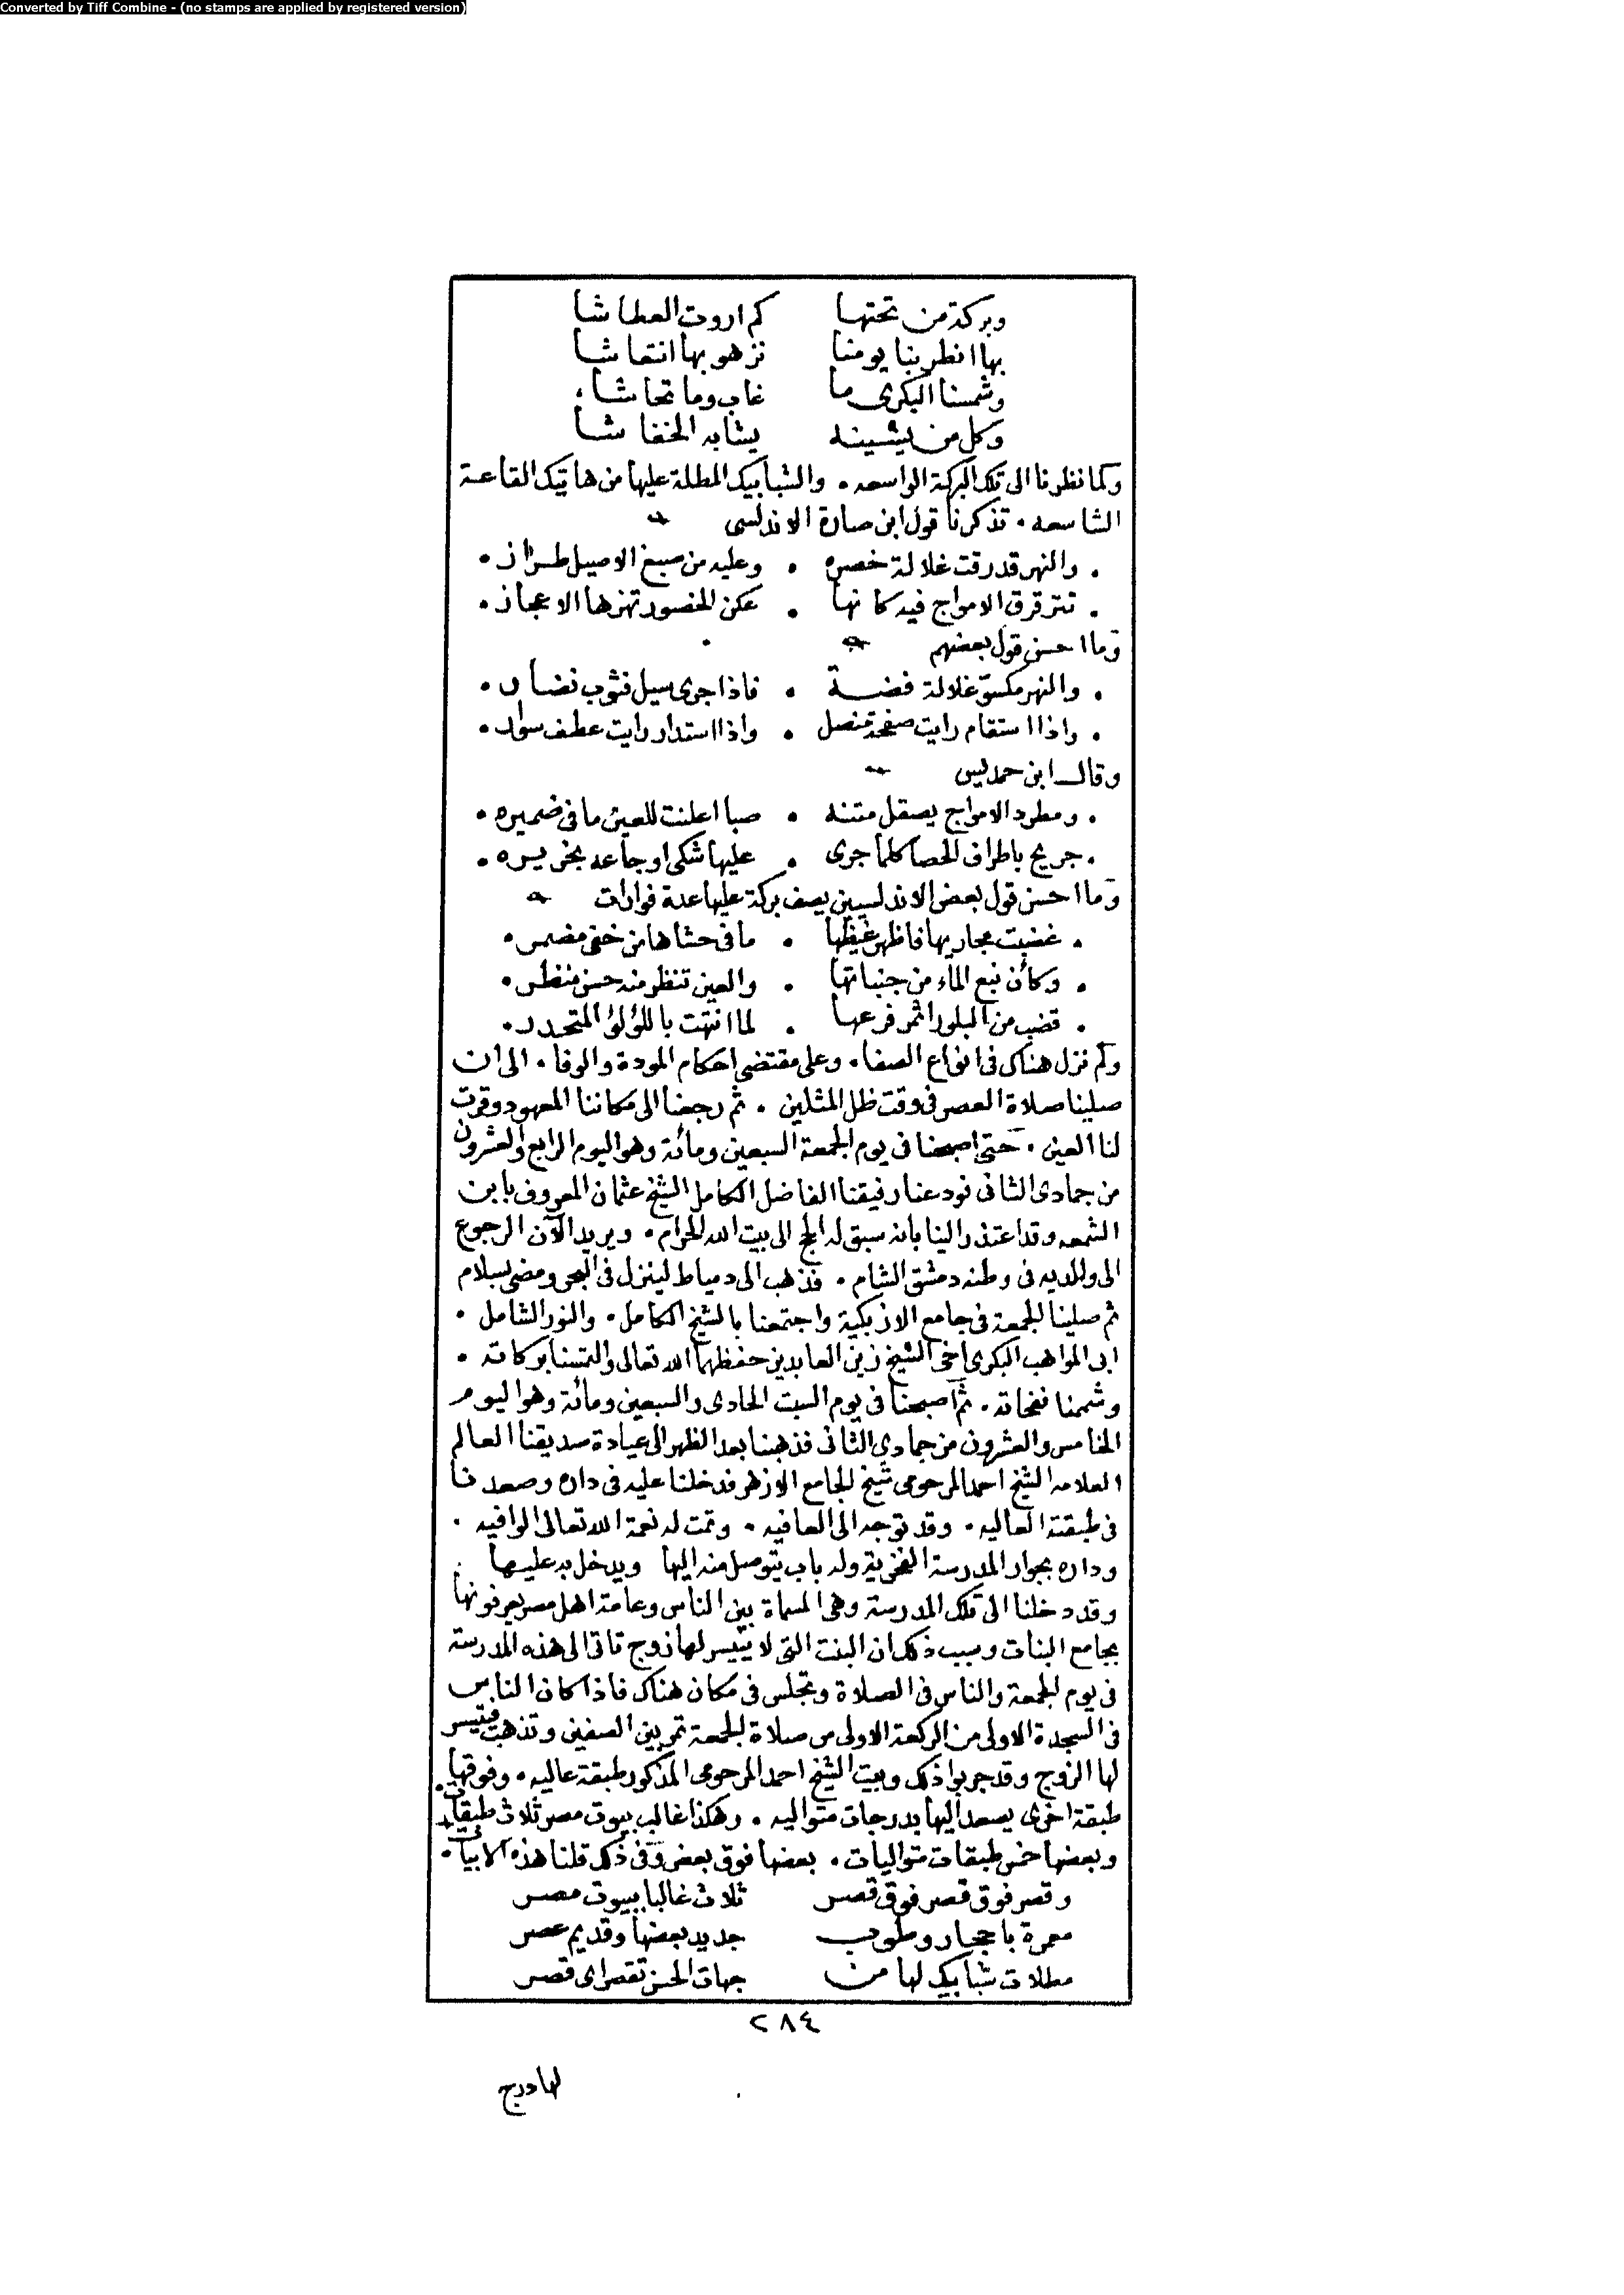 Converted by Tiff Combine - (no stamps are applied by registered version)
وبركة من تحتها كم اروت العطاشا
بها انطربنا يومنا نزهو بها انتعاشا
وشمسنا البكرى ما غاب وما تحاشا
وكل من يشينه يشابه الخفاشا
وكما نظرنا الى تلك البركة الواسعه . والشبابيك المطلة عليها من هاتيك القاعة
الشاسعه . تذكرنا قول ابن صارة الاندلسى
. والنهر قد رقت غلالة خصره . وعليه من صبغ الاصيل طراز .
. تترقرق الامواج فيه كانها . عكن الخصور تهزها الاعجاز .
وما احسن قول بعضهم
. والنهر مكسو غلالة فضة . فاذا جرى سيل فثوب نضار .
. واذا استقام رايت صفحة منصل . واذا استدار رايت عطف سوار .
وقال ابن حمديس
. ومطرد الامواج يصقل متنه . صبا اعلنت للعين ما فى ضميره .
. جريح باطراف الحصا كلما جرى . عليها شكى اوجاعه بخريره .
وما احسن قول بعض الاندلسيين يصف بركة عليها عدة فوارات
. غضبت مجاريها فاظهر غيظها . ما فى حشاها من خفى مضمر .
. وكأن نبع الماء من جنباتها . والعين تنظر منه حسن منظر .
. قضب من البلور اثمر فرعها . لما انتهت باللؤلؤ المتحدر .
ولم نزل هناك فى انواع الصفا . وعلى مقتضى احكام المودة والوفا . الى ان
صلينا صلاة العصر فى وقت ظل المثلين . ثم رجعنا الى مكاننا المعهود وقرت
لنا العين . حتى اصبحنا فى يوم الجمعة السبعين ومائة وهو اليوم الرابع والعشرون
من جمادى الثانى فودعنا رفيقنا الفاضل الكامل الشيخ عثمان المعروف بابن
الشمعه وقد اعتذر الينا بانه سبق له الحج الى بيت الله الحرام . ويريد الآن الرجوع
الى والديه فى وطنه دمشق الشام . فذهب الى دمياط لينزل فى البحر ومضى بسلام
ثم صلينا الجمعة فى جامع الازبكية واجتمعنا بالشيخ الكامل . والنور الشامل .
ابى المواهب البكرى اخى الشيخ زين العابدين حفظهما الله تعالى والتمسنا بركاته .
وشممنا نفحاته . ثم اصبحنا فى يوم السبت الحادى والسبعين ومائة وهو اليوم
الخامس والعشرون من جمادى الثانى فذهبنا بعد الظهر الى عيادة صديقنا العالم
العلامه الشيخ احمد المرحومى شيخ الجامع الازهر فدخلنا عليه فى داره وصعدنا
فى طبقته العاليه . وقد توجه الى العافيه . وتمت له نعمة الله تعالى الوافيه .
وداره بجوار المدرسة الفخرية وله باب يتوصل منه اليها ويدخل به عليها
وقد دخلنا الى تلك المدرسة وهى المسماة بين الناس وعامة اهل مصر يعرفونها
بجامع البنات وسبب ذلك ان البنت التى لا يتيسر لها زوج تاتى الى هذه المدرسة
فى يوم الجمعة والناس فى الصلاة وتجلس فى مكان هناك فاذا كان الناس
فى السجدة الاولى من الركعة الاولى من صلاة الجمعة تمر بين الصفين وتذهب فيتيسر
لها الزوج وقد جربوا ذلك وبيت الشيخ احمد المرحومى المذكور طبقة عاليه . وفوقها
طبقة اخرى يصعد اليها بدرجات متواليه . وهكذا غالب بيوت مصر ثلاث طبقات
وبعضها خمس طبقات متواليات . بعضها فوق بعض وفى ذلك قلنا هذه الابيات .
وقصر فوق قصر فوق قصر ثلاث غالبا بيوت مصر
معمرة باحجار وطوب جديد بعضها وقديم عصر
مطلات شبابيك لها من جهات الحسن تقصر اى قصر
٢٨٤
لها درج